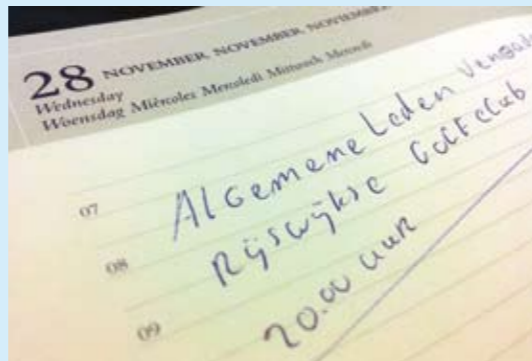 28 NOVEMBER NOVEMBER NOVEMBER NOVIEMBRE
Wednesday
Woensdag Miércoles Mercoledì Mittwoch Mercredi
07
Algemene Leden Vergad
08
Rijswijkse Golfclub
09
20.00 uur